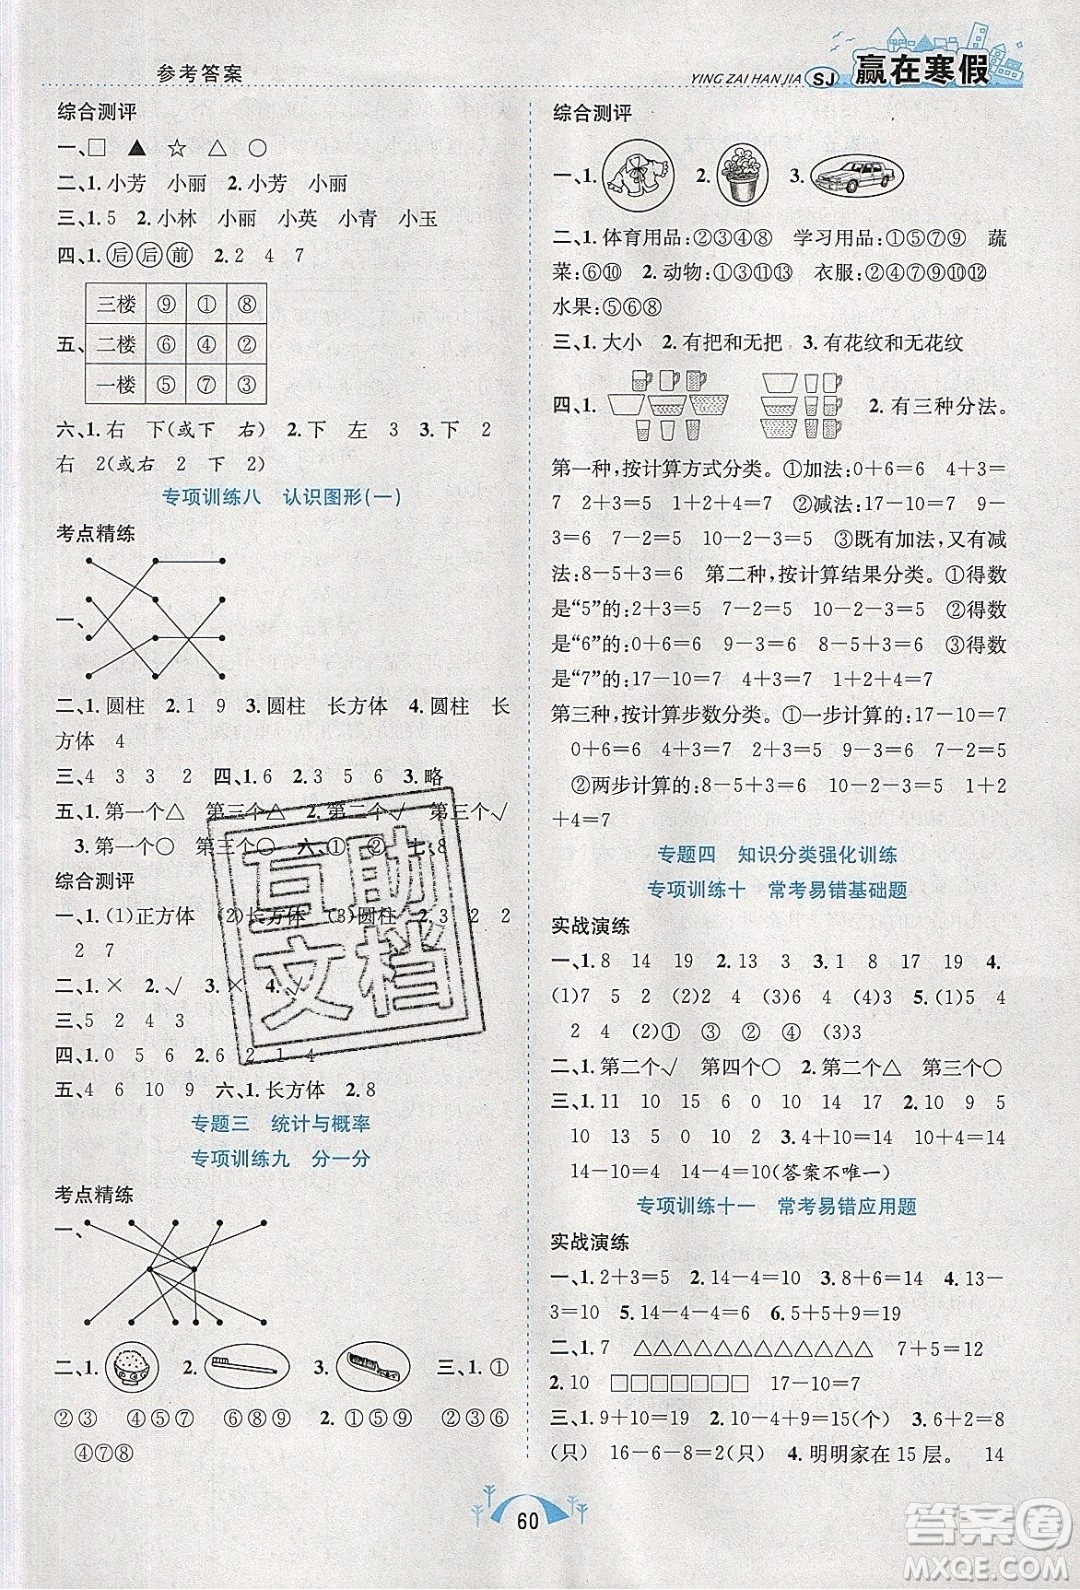 参考答案
YING ZAI HAN JIA SJ 赢在寒假
综合测评
一、□ ▲ ☆ △ ○
二、1. 小芳 小丽 2. 小芳 小丽
三、1. 5 2. 小林 小丽 小英 小青 小玉
四、1. 后 后 前 2. 2 4 7
三楼 ⑨ ① ⑧
五、 二楼 ⑥ ④ ②
一楼 ⑤ ⑦ ③
六、1. 右 下(或下 右) 2. 下 左 3 3. 下 2
右 2(或右 2 下 2)
专项训练八 认识图形(一)
考点精练
一、
二、1. 圆柱 2. 1 9 3. 圆柱 长方体 4. 圆柱 长
方体 4
三、4 3 3 2 四、1. 6 2. 3 5 6 3. 略
五、1. 第一个△ 第三个△ 2. 第二个√ 第三个√
3. 第一个○ 第三个○ 六、① ② 七、8
综合测评
一、1. (1)正方体 (2)长方体 (3)圆柱 2. 3 2 2
2 7
二、1. × 2. √ 3. × 4. √
三、5 2 4 3
四、1. 0 5 4 6 2 1 4
五、4 6 10 9 六、1. 长方体 2. 8
专题三 统计与概率
专项训练九 分一分
考点精练
一、
二、1. 2. 3. 三、1. ①
②③ ④⑤⑥ ⑦⑧ 2. ①③⑤⑥ ②
④⑦⑧
综合测评
一、1. 2. 3.
二、1. 体育用品:②③④⑧ 学习用品:①⑤⑦⑨ 蔬
菜:⑥⑩ 2. 动物:①③⑪⑬ 衣服:②④⑦⑨⑩⑫
水果:⑤⑥⑧
三、1. 大小 2. 有把和无把 3. 有花纹和无花纹
四、1. 2. 有三种分法。
第一种,按计算方式分类。①加法:0+6=6 1+4+2=
7 2+3=5 ②减法:17-10=7 9-3=
6 7-2=5 10-2-3=5 ③既有加法,又有减
法:8-5+3=6 第二种,按计算结果分类。①得数
是“5”的:2+3=5 7-2=5 10-2-3=5 ②得数
是“6”的:0+6=6 9-3=6 8-5+3=6 ③得数
是“7”的:17-10=7 1+4+2=7
第三种,按计算步数分类。①一步计算的:17-10=7
0+6=6 9-3=6 2+3=5 7-2=5
②两步计算的:8-5+3=6 10-2-3=5 1+2+
4=7
专题四 知识分类强化训练
专项训练十 常考易错基础题
实战演练
一、1. 8 14 19 2. 13 12 3. 1 19 11 4.
(1)7 5 2 2 (2)4 7 (3)2 4 5. (1)5 4
2 4 (2)④ ③ ② ④ (3)3
二、1. 第二个√ 第四个○ 2. 第二个△ 第三个○
三、1. 10 11 15 10 15 14 2. 8 8 9
16 10 13 3 2 10 3. 4+10=14 10
+4=14 14-4=10 14-10=4(答案不唯一)
专项训练十一 常考易错应用题
实战演练
一、1. 2+3=5 2. 14-4=10 3. 8+6=14 4. 13-
3=10 5. 14-4-4=6 6. 5+5+9=19
二、1. 7 △△△△△△△△△△△△ 7+5=12
2. 10 □□□□□□□ 17-10=7
三、1. 9+10=19 2. 17-2=15(个) 3. 6+2=8
(只) 16-6-8=2(只) 4. 明明家在 15 层。 14
60
互助文档
答案圈
MXQE.COM